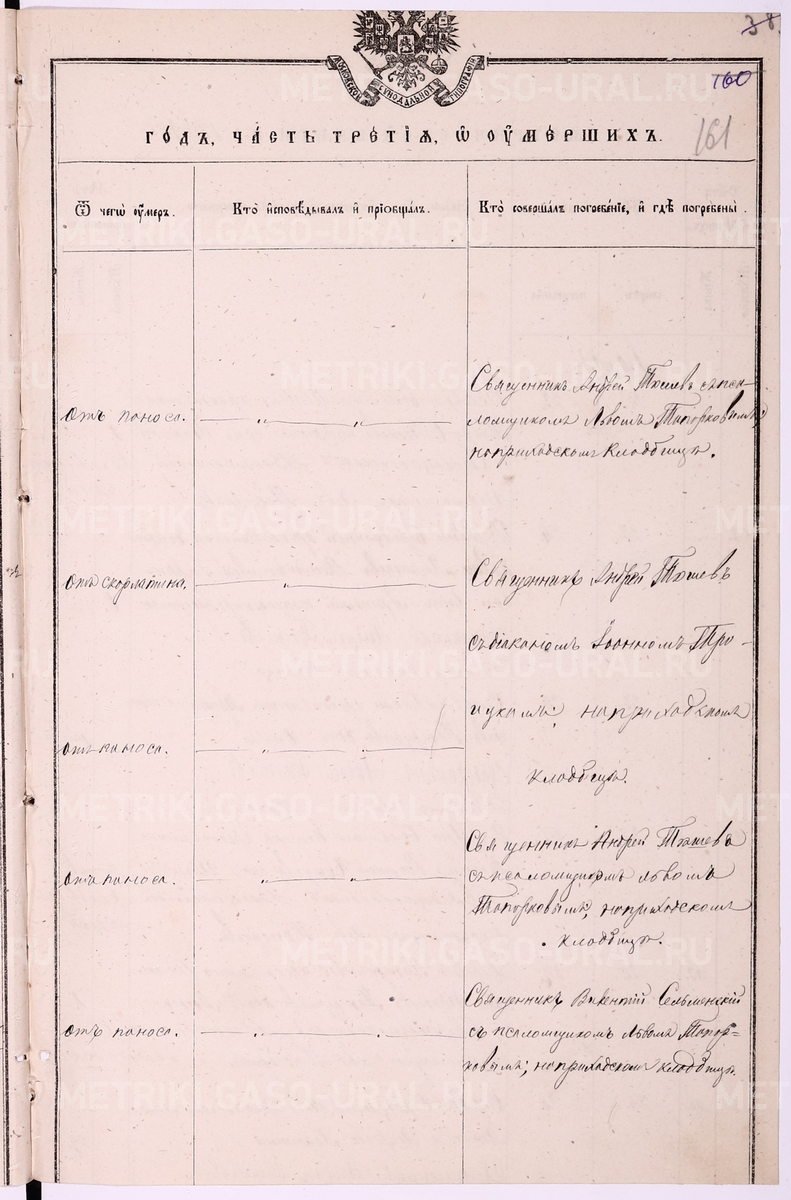 38
160
161
МОСКОВСКОЙ СѴНОДАЛЬНОЙ ТИПОГРАФІИ
го́дъ, ча́сть тре́тїѧ, ѡ҆ ᲂу҆ме́ршихъ.
Ѿ чегѡ̀ ᲂу҆́меръ.
Кто̀ и҆сповѣ́дывалъ и҆ прїѡбща́лъ.
Кто̀ соверша́лъ погребе́нїе, и҆ гдѣ̀ погребены̀.
отъ поноса.
Священникъ Андрей Тюшевъ съ пса-
ломщикомъ Львомъ Топорковымъ
на приходскомъ кладбищѣ.
отъ скорлатина.
Священникъ Андрей Тюшевъ
съ діакономъ Іоанномъ
на приходскомъ
кладбищѣ.
отъ поноса.
отъ поноса.
Священникъ Андрей Тюшевъ
съ псаломщикомъ Львомъ
Топорковымъ, на приходскомъ
кладбищѣ.
отъ поноса.
Священникъ Викентій Сельменскій
съ псаломщикомъ Львомъ Топор=
ковымъ; на приходскомъ кладбищѣ.
METRIKI.GASO-URAL.RU